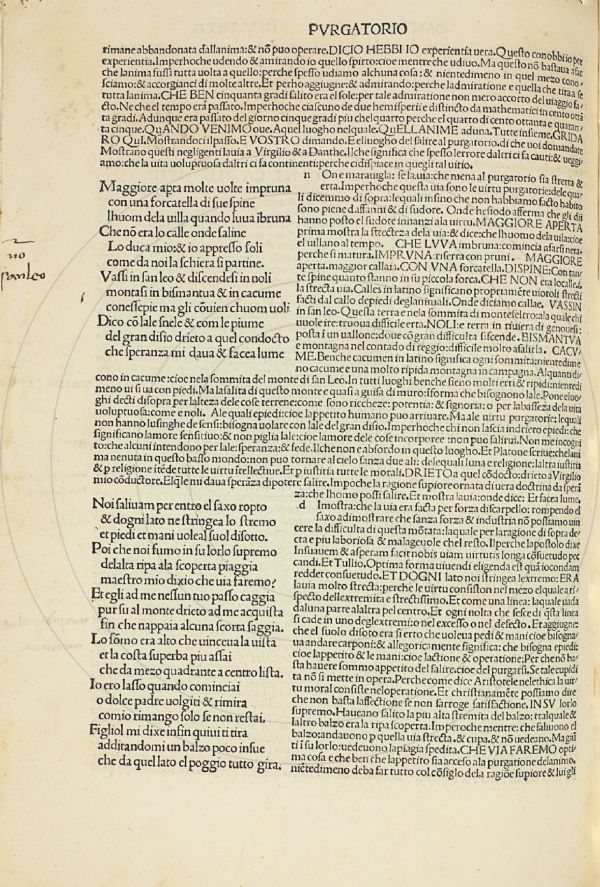 PVRGATORIO
rimane abbandonata dallanima: & nõ puo operare. DICIO HEBBI IO experientia uera. Questo conobbi io per
experientia. Imperhoche udendo & amirando io quello spirto: cioe mentre che udiuo. Ma questo nõ bastaua a far
che lanima fussi tutta uolta a quello: perche spesso udiamo alchuna cosa: & nientedimeno in quel mezo cono-
sciamo: & accorgianci di molte altre. Et perho aggiugne: & admirando: perche ladmiratione e quella che tira a se
tutta lanima. CHE BEN cinquanta gradi salito era el sole: per tale admiratione non meco accorto del uiaggio fa-
cto. Ne che el tempo era passato. Imperhoche ciascuno de due hemisperii e distincto da mathematici in cento otta
ta gradi. Adunque era passato del giorno cinque gradi piu chel quarto perche el quarto di cento ottanta e quaran-
ta cinque. QuANDO VENIMO oue. A quel luogho nel quale. QuELLANIME aduna. Tutte insieme. GRIDA
RO Qui. Mostrandoci il passo. E VOSTRO dimando. E el luogho del salire al purgatorio. di che uoi domandate
Mostrano questi negligenti la uia a Virgilio & a Danthe. Il che significa che spesso lerrore daltri ci fa cauti: & ueggi
amo: che la uita uoluptuosa daltri ci fa continenti: perche ci dispiace in quegli tal uitio.
Maggiore apta molte uolte impruna
con una forcatella di sue spine
lhuom dela uilla quando luua ibruna
Che nõ era lo calle onde saline
Lo duca mio: & io appresso soli
come da noi la schiera si partine.
Vassi in san leo & discendesi in noli
montasi in bismantua & in cacume
con essepie ma gli cõuien chuom uoli
Dico cõ lale snele & com le piume
del gran disio drieto a quel condocto
che speranza mi daua & facea lume
no
san leo
n On e marauiglia: se la uia: che mena al purgatorio sia stretta &
erta. Imperhoche questa uia sono le uirtu purgatorie: dele qua-
li dicemmo di sopra: le quali in sino che non habbiamo facto habito
sono piene daffanni & di sudore. Onde hesiodo afferma che gli dii
hanno posto el sudore innanzi ala uirtu. MAGGIORE APERTA
prima mostra la strecteza dela uia: & dice: che lhuomo dela uia: cioe
el uillano al tempo. CHE LVVA imbruna: comincia a farsi nera.
perche si matura. IMPRVNA riserra con pruni. MAGGIORE
aperta. maggior callaia. CON VNA forcatella. DISPINE: Con tan-
te spine quanto stanno in su piccola forca. CHE NON era lo calle. cioe
la strecta uia. Calles in latino significano propriamẽte uiotoli strecti
facti dal callo de piedi deglanimali. Onde diciamo callae. VASSIN
in san leo. Questa terra e nella sommita di montefeltro: ala quale chi
uuole ire: truoua difficile erta. NOLI: e terra in riuiera di genouesi:
posta i un uallone: doue cõ gran difficulta si scende. BISMANTVA
e montagna nel contado di reggio: difficile molto a salirla. CACV
ME. Benche cacumen in latino significa ogni sommita: nientedime
no cacume e una molto ripida montagna in campagna. Alquanti di-
cono in cacume: cioe nella sommita del monte di san Leo. In tutti luoghi benche sieno molti erti & ripidi: nientedi
meno ui si ua con piedi. Ma la salita di questo monte quasi a guisa di muro: ifforma che bisognono lale. Pone el luo-
ghi decti di sopra per lalteza dele cose terrene: come sono riccheze: potentia: & signoria: o per la basseza dela uita
uoluptuosa: come e noli. Ale quali epiedi: cioe lappetito humano puo arriuare. Ma ale uirtu purgatorie: le quali
non hanno lusinghe de sensi: bisogna uolare con lale del gran disio. Imperhoche chi non lascia indrieto epiedi: che
significano lamore sensitiuo: & non piglia lale: cioe lamore dele cose incorporee: non puo salirui. Non me incogni
to: che alcuni intendono per lale: speranza: & fede. Il che non e abhorrente in questo luogo. Et Platone scriue: che lani
ma nenuta in questo basso mondo: non puo tornare al cielo sanza due ali: dele quali luna e religione: laltra iustitia
& p religione itẽde tutte le uirtu itellectiue. Et p iustitia tutte le morali. DRIETO a quel cõdocto: drieto a Virgilio
mio cõductore. El qle mi daua sperãza di potere salire. Impoche la ragione supiore ornata di uera doctrina da speran
za: che lhomo possi salire. Et mostra la uia: onde dice: Et facea lume.
Noi saliuam per entro el saxo ropto
& dogni lato ne stringea lo stremo
et piedi et mani uole al suol disotto.
Poi che noi fumo in su lorlo supremo
delalta ripa ala scoperta piaggia
maestro mio dixio che uia faremo?
Et egli ad me nessun tuo passo caggia
pur su al monte drieto ad me acquista
fin che nappaia alcuna scorta saggia.
Lo sõmo era alto che uincea la uista
et la costa superba piu assai
che da mezo quadrante a centro lista.
Io ero lasso quando cominciai
o dolce padre uolgiti & rimira
comio rimango solo se non restai.
Figliol mi dixe insin quiui ti tira
additandomi un balzo poco insue
che da quel lato el poggio tutto gira.
d Imostra: che la uia era facta per forza di scarpello: rompendo el
saxo a dimostrare che sanza forza & industria nõ possiamo uin-
cere la difficulta di questa mõtata: la quale per laragione di sopra de-
cta e piu laboriosa & malageuole che l resto. Il perche lapostolo dixe
Insuauem & asperam facit nobis uiam uirtutis longa cõsuetudo pec
candi. Et Tullio. Optima forma uiuendi eligenda est quã iocundam
redder consuetudo. ET DOGNI lato noi stringea lextremo: ERA
la uia molto strecta: perche le uirtu consiston nel mezo el quale a ri-
specto dellextremita e strectissimo. Et come una linea: la quale uada
da luna parte alaltra pel centro. Et ogni nolta che fesce di q̃sta linea
si cade in uno deglextremi: o nel excesso o nel defecto. Et aggiugne:
che el suolo disoto era si erto che uolea ua pedi & mani cioe bisogna
ua andare carponi: & allegoricamente significa: che bisogna epiedi:
cioe lappetito & le mani: cioe lactione & operatione: Per che nõ ba-
sta hauere sommo appetito del salire. cioe del purgarsi. Se tale cupidi
ta nõ si mette in opera. Perche come dice Aristotele nelethica la uir-
tu moral consiste nel operatione. Et christianamẽte possiamo dire
che non basta laffectione se non sarroge satisfactione. IN SV lorlo
supremo. Haueano salito la piu alta stremita del balzo: tralquale &
laltro balzo era la ripa scoperta. Imperoche mentre: che saliuono el
balzo: andauono p quella uia strecta. & cupa. & nõ uedeano. Ma giũ
ti i su lorlo: uedeuono la piagia spedita. CHE VIA FAREMO opti-
ma cosa e che ben che lappetito sia acceso ala purgatione delanimo.
niẽtedimeno deba far tutto col cõsiglo dela ragiõe supiore & lui gli